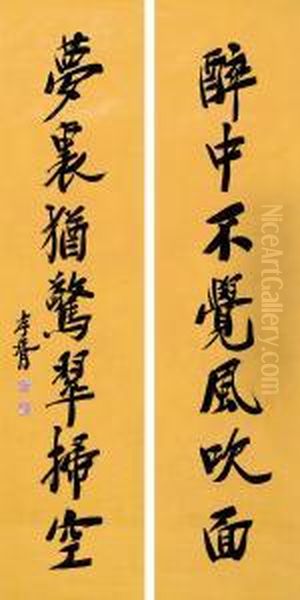 醉中不覺風吹面
夢裏猶驚翠掃空
孝胥
NiceArtGallery.com